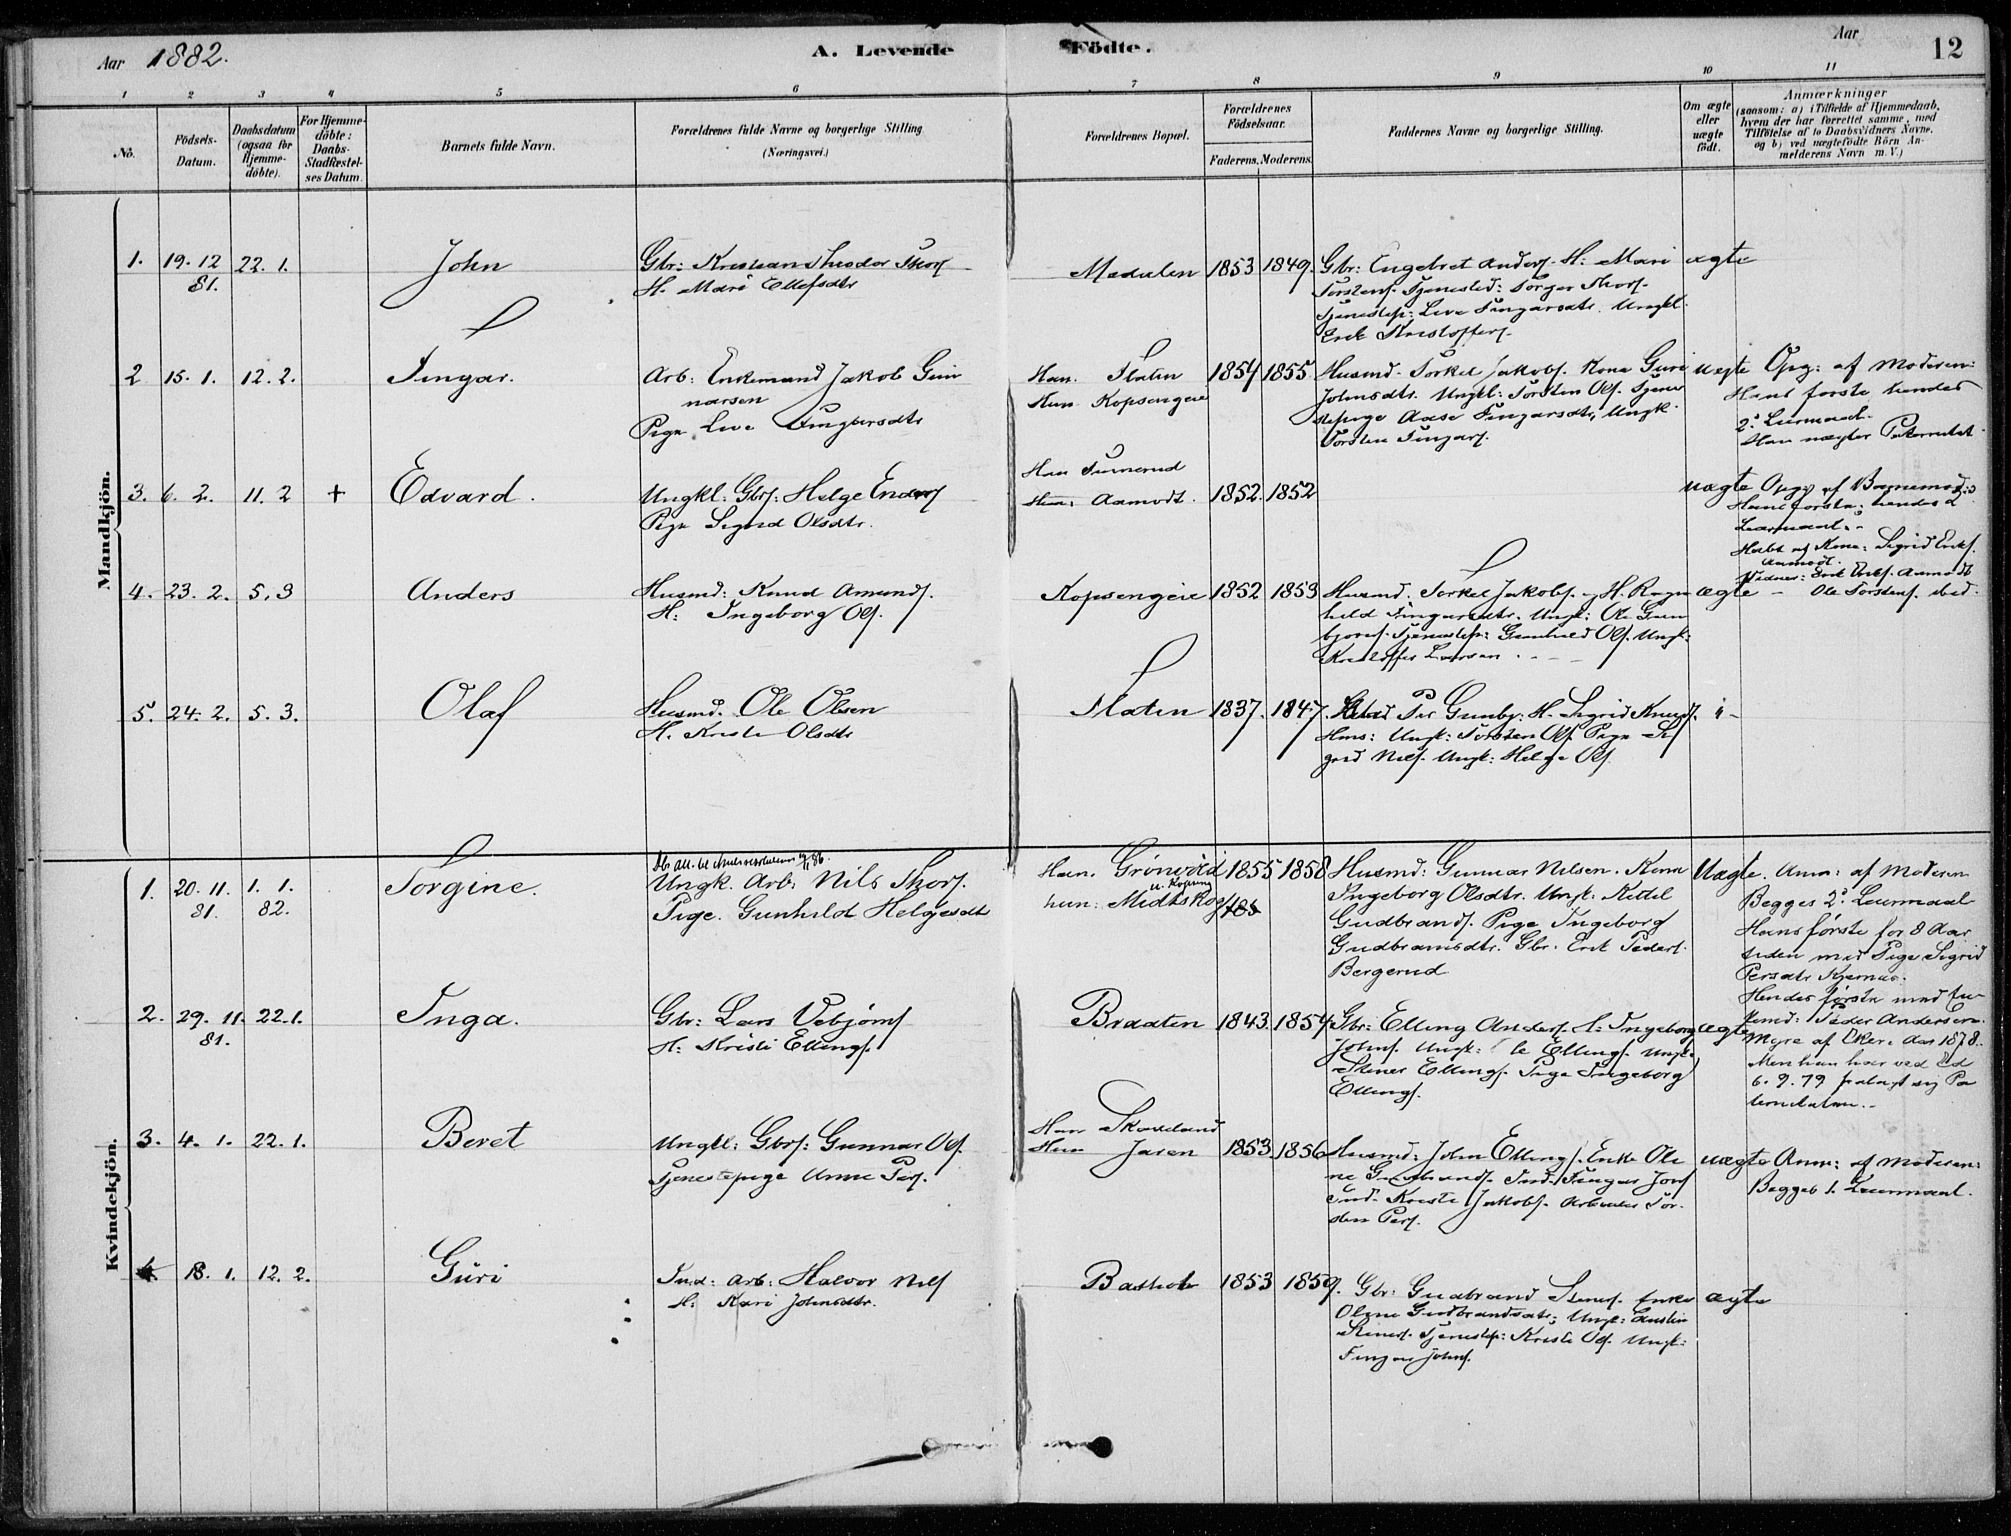 Aar 1882.
A. Levende Födte.
Aar
12
1 2 3 4 5 6 7 8 9 10 11
No.
Födsels-Datum.
Daabsdatum (ogsaa for Hjemme-döbte).
For Hjemme-döbte: Daabs-Stadfæstel-ses Datum.
Barnets fulde Navn.
Forældrenes fulde Navne og borgerlige Stilling
(Næringsvei.)
Forældrenes Bopæl.
Forældrenes Födselsaar.
Faderens. Moderens.
Faddernes Navne og borgerlige Stilling.
Om ægte eller uægte födt.
Anmærkninger
(saasom: a) i Tilfælde af Hjemmedaab,
hvem der har forrettet samme, med
Tilföielse af to Daabsvidners Navne,
og b) ved uægtefödte Börn An-
melderens Navn m. V.)
Mandkjön.
1. 19. 12 81. 22. 1. John
Gbr: Kristian Theodor Thors
H. Mari Ellefsdtr
1853 1849.
Gbr: Engebret Anders. H: Mari
Torstens. Tjenested: Torger Thors.
Tjenestep: Live Fingarsdtr. Ungkl.
Erik Kristoffers.
ægte
2 15. 1. 12. 2. Fingar.
Arb: Enkemand Jakob Gun
narsen
Pige Live Fingarsdtr
Han. Flaten
Hun Kopsengeie
1854 1855
Husmd. Torkel Jakobs. Kone Guri
Johnsdtr. Ungkl: Torsten Ols. Tjene
stepige Aase Fingarsdtr, Ungk.
Torsten Fingars.
uægte
Opg: af Moderen:
Hans første hendes
2. Leiermaal.
Han nægter Paternitet
3. 6. 2. 11. 2 + Edvard.
Ungkl: Gbrs: Helge Enders
Pige Sigrid Olsdtr.
Han
Hun: Aamodt.
1852. 1852
uægte
Opg: af
Hans første, hendes 2
Leiermaal.
Høbt af Kone: Sigrid Eriks.
Aamodt.
Vidner: Erik Eriks. Aamodt
Ole Torstens. ibid.
4. 23. 2. 5. 3 Anders
Husmd: Knud Amunds.
H: Ingeborg Ols.
Kopsengeie 1852 1853
Husmd. Torkel Jakobs. H. Ragn
hild Fingarsdtr. Ungk: Ole Gun
bjørns. Tjenestep: Gunhild Ols. Ungk:
Kristoffer Larsen
ægte -
5. 24. 2. 5. 3. Olaf
Husmd. Ole Olsen
H. Kristi Olsdtr
Flaten 1837. 1847.
Per Gunbj: H. Sigrid Knuds.
Hms: Ungk: Torsten Ols. Pige Si
grid Nils. Ungk: Helge Ols.
Kvindekjön.
1. 20. 11. 81. 1. 1. 82. Torgine.
Ungk. Arb: Nils Thors.
Pige. Gunhild Helgesdt
Han. Grönvold
hun: Midtskog
1855 1858
Husmd: Gunnar Nilsen. Kone
Ingeborg Olsdtr. Ungk: Kittil
Gudbrands. Pige Ingeborg
Gudbrandsdtr. Gbr: Erik Peders.
Bergerud
Uægte.
Anm: af Moderen
Begges 2. Leiermaal
Hans første for 8 Aar
siden med Pige Sigrid
Persdtr
Hendes første med
Peder Andersen
Myre af Eker: Aar 1878.
Men han har ved Ed
6. 9. 79 fralagt sig Pa
terniteten.
2. 29. 11. 81. 22. 1. Inga.
Gbr: Lars Vebjörns
H: Kristi Ellings.
Braaten 1843. 1854
Gbr: Elling Anders. H: Ingeborg
Johns. Ungk: Ole Ellings. Ungk:
Stener Ellings. Pige Ingeborg
Ellings.
ægte
3. 4. 1. 22. 1. Beret
Ungkl: Gbrs: Gunnar Ols.
Tjenestepige Anne Pers.
Han
Hun Jaren
1853. 1856
Husmd: John Ellings. Enke Ole
ne Gudbrands. Ind. Fingar Jons
Ind. Kristi Jakobs. Arbeider Tor
sten Pers.
uægte
Anm: af Moderen:
Begges 1. Leiermaal.
4. 18. 1. 12. 2. Guri
Ind: Arb: Halvor Nils
H: Kari Johnsdtr.
1853 1859.
Gbr: Gudbrand Steners. Enke
Olene Gudbrandsdtr; Ungk:
Steners. Tjenestep: Kristi Ols. Ungk:
Fingar Johns.
ægte